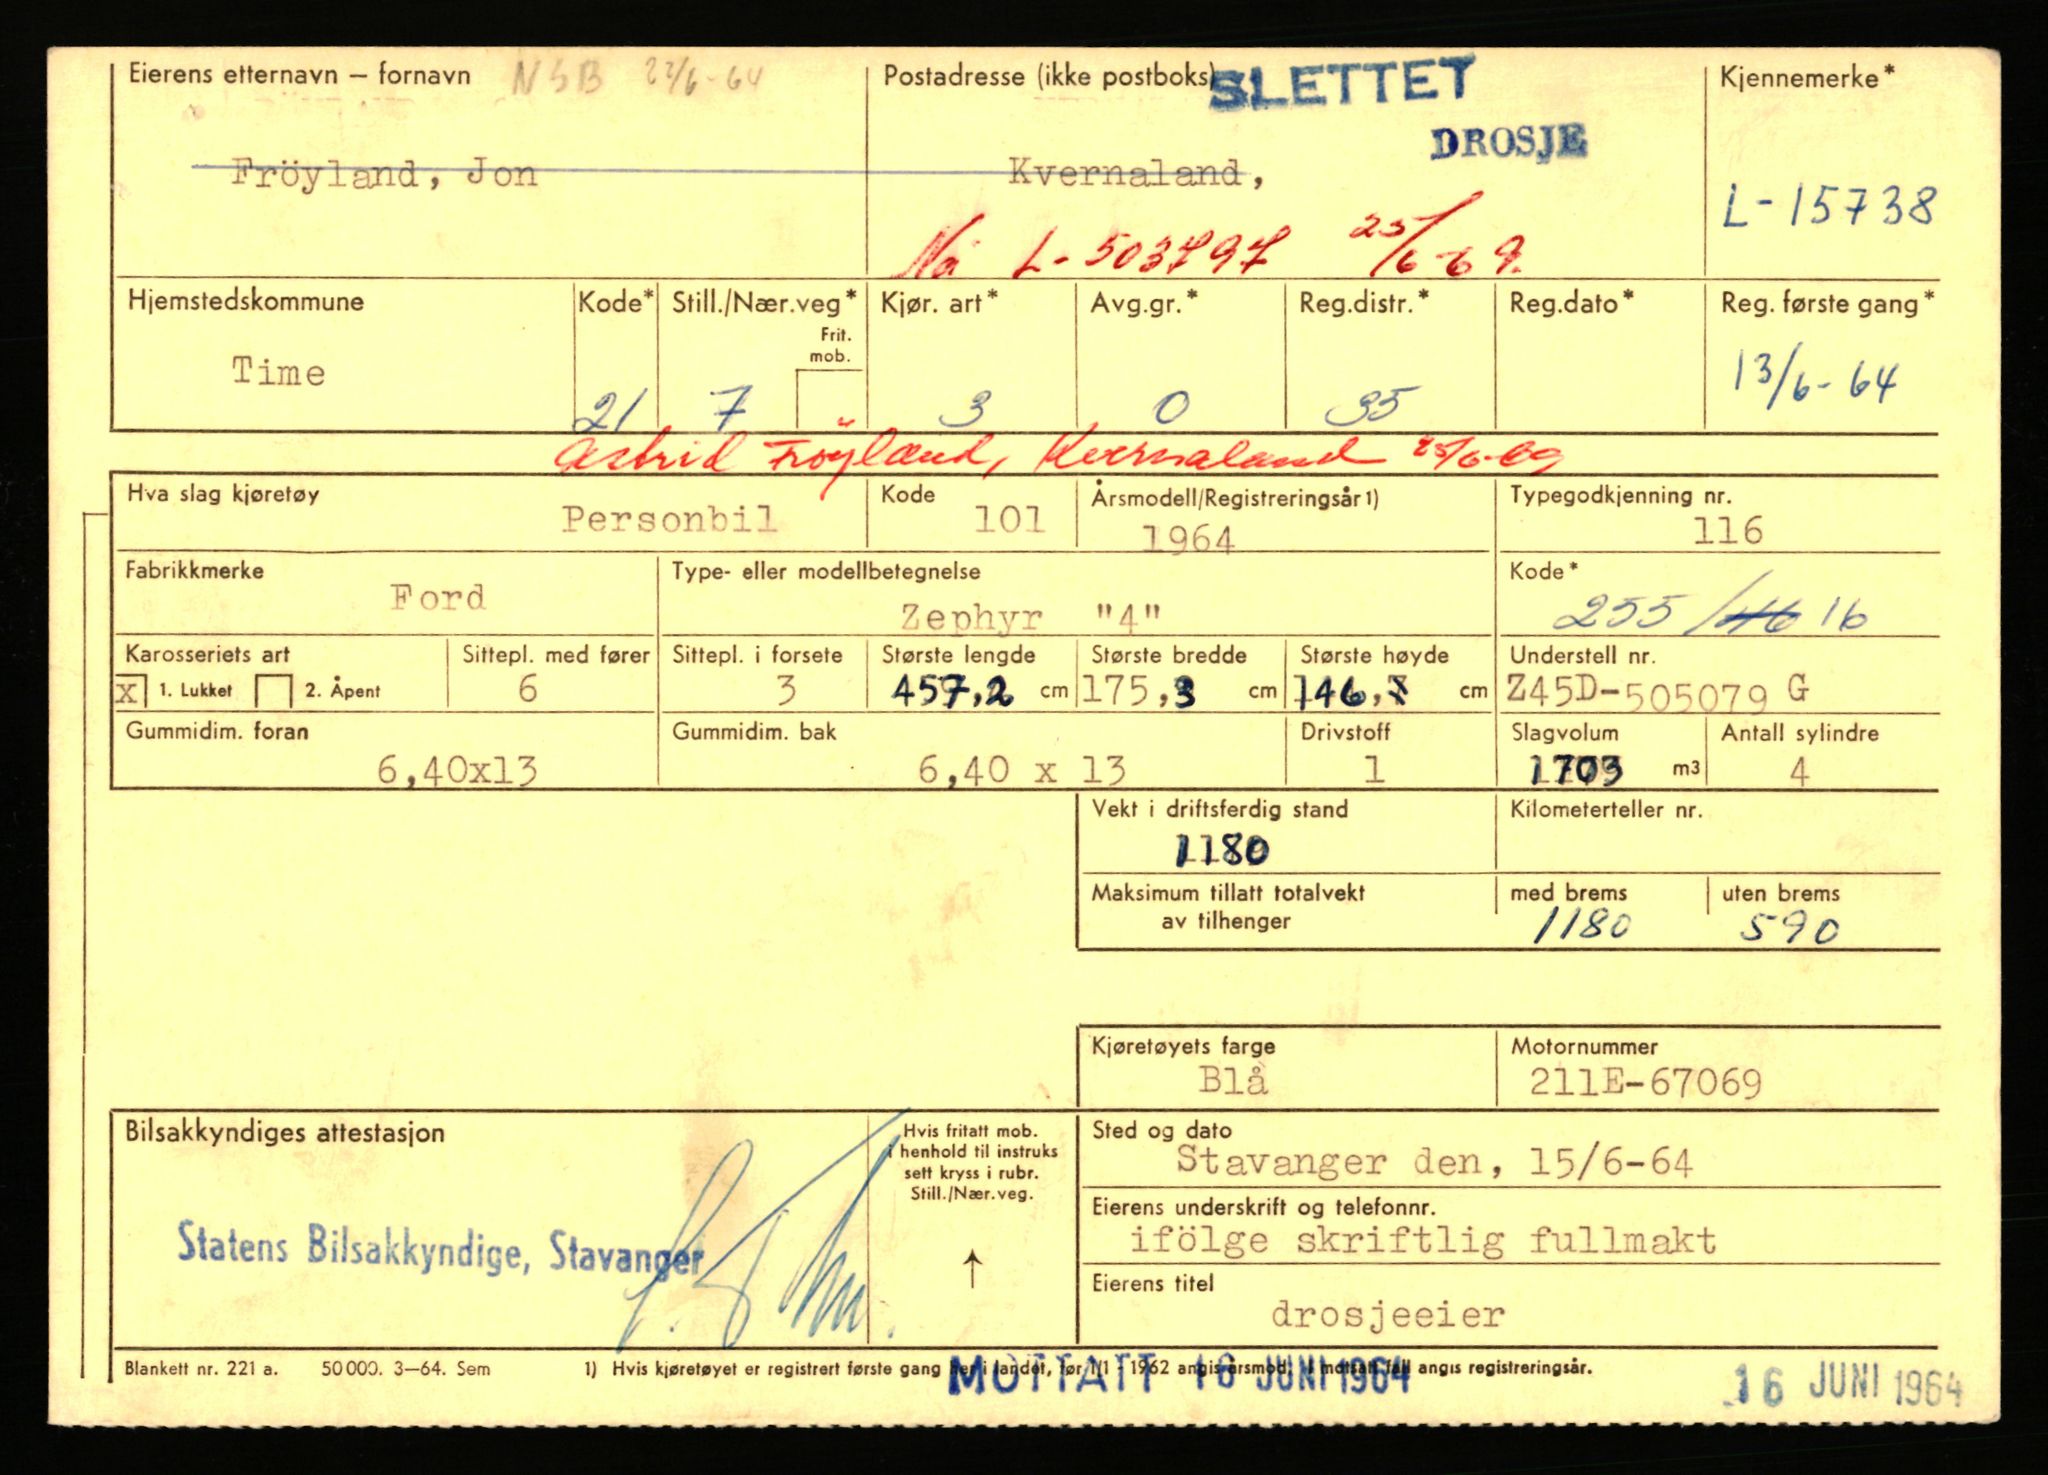 Eierens etternavn – fornavn NSB 22/6-64 Postadresse (ikke postboks) SLETTET Kjennemerke*
DROSJE
Fröyland, Jon Kvernaland,
L-15738
Nå L-503797 25/6-69.
Hjemstedskommune Kode* Still./Nær.veg* Kjør. art* Avg.gr.* Reg.distr.* Reg.dato* Reg. første gang*
Frit.
mob.
Time 21 7 3 0 35 13/6-64
Astrid Frøyland, Kvernaland 25/6-69
Hva slag kjøretøy Kode Årsmodell/Registreringsår 1) Typegodkjenning nr.
Personbil 101 1964 116
Fabrikkmerke Type- eller modellbetegnelse Kode*
Ford Zephyr "4" 255/46 16
Karosseriets art Sittepl. med fører Sittepl. i forsete Største lengde Største bredde Største høyde Understell nr.
x 1. Lukket 2. Åpent 6 3 457,2 cm 175,3 cm 146, cm Z45D-505079 G
Gummidim. foran Gummidim. bak Drivstoff Slagvolum Antall sylindre
6,40x13 6,40 x 13 1 1703 m3 4
Vekt i driftsferdig stand Kilometerteller nr.
1180
Maksimum tillatt totalvekt med brems uten brems
av tilhenger 1180 590
Kjøretøyets farge Motornummer
Blå 211E-67069
Bilsakkyndiges attestasjon Hvis fritatt mob. Sted og dato
i henhold til instruks
sett kryss i rubr.
Still./Nær.veg.
Stavanger den, 15/6-64
Eierens underskrift og telefonnr.
Statens Bilsakkyndige, Stavanger ifölge skriftlig fullmakt
Eierens titel
drosjeeier
Blankett nr. 221 a. 50 000. 3–64. Sem 1) Hvis kjøretøyet er registrert første gang her i landet, før 1/1 - 1962 angis årsmod. I motsatt fall angis registreringsår.
MOTTATT 16 JUNI 1964 16 JUNI 1964